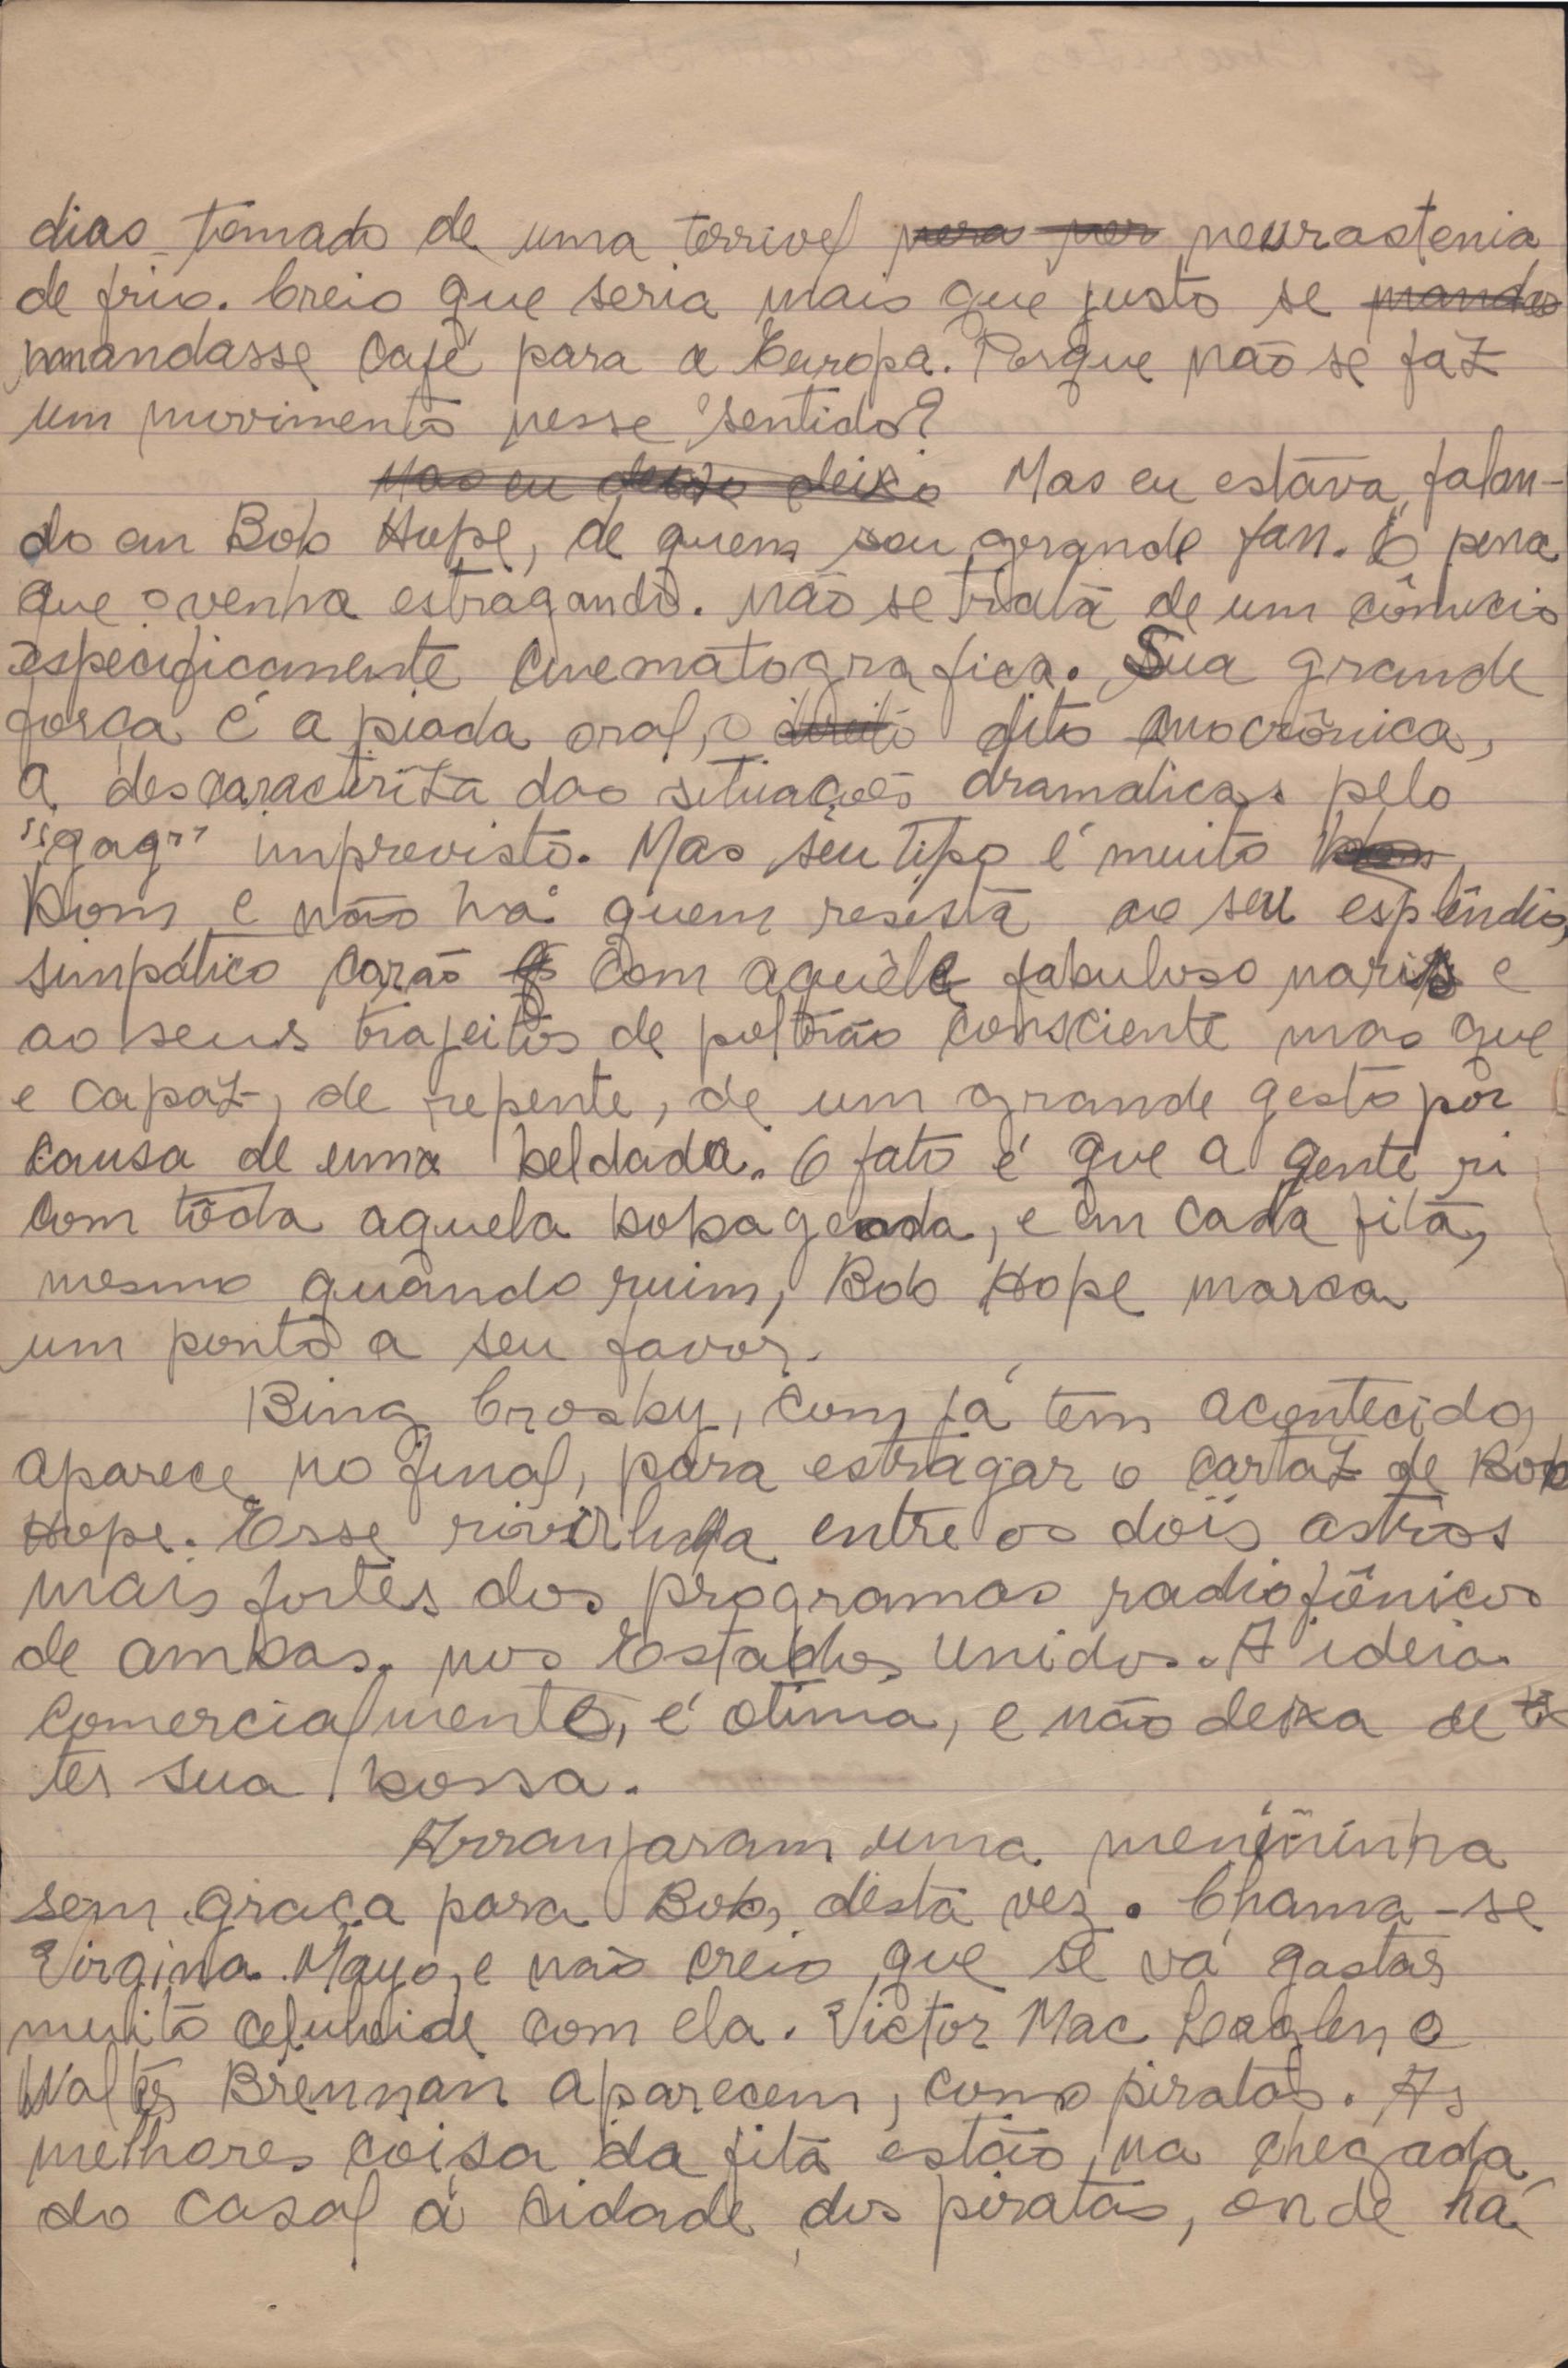 dias tomado de uma terrivel nera ner neurastenia
de frio. Creio que seria mais que justo se mandas
mandasse café para a Europa. Porque não se faz
um movimento nesse sentido?
Mas eu deixo deixo Mas eu estava falan-
do em Bob Hope, de quem sou grande fan. É pena
que o venha estragando. Não se trata de um cômico
especificamente cinematografica. Sua grande
força é a piada oral, o direito dito anacrônica,
a descaracteriza das situações dramaticas pelo
"gag" imprevisto. Mas seu tipo é muito bom
bom e não há quem resista ao seu esplêndio,
simpático carão com aquêle fabuloso naris e
ao seus trajeitos de poltrão consciente mas que
e capaz, de repente, de um grande gesto por
causa de uma beldade. O fato é que a gente ri
com tôda aquela bobageada, e em cada fita,
mesmo quando ruim, Bob Hope marca
um ponto a seu favor.
Bing Crosby, com já tem acontecido,
aparece no final, para estragar o cartaz de Bob
Hope. Esse entre os dois astros
mais fortes dos programas radiofônicos
de ambas. nos Estados Unidos. A ideia
comercialmente, é otima, e não deixa de
ter sua bossa.
Arranjaram uma menininha
sem graça para Bob, desta vez. Chama-se
Virginia Mayo, e não creio que se vá gastar
muito celuloide com ela. Victor Mac Laglen e
Walter Brennan aparecem, como piratas. As
melhores coisa da fita estão na chegada
do casal á cidade dos piratas, onde há